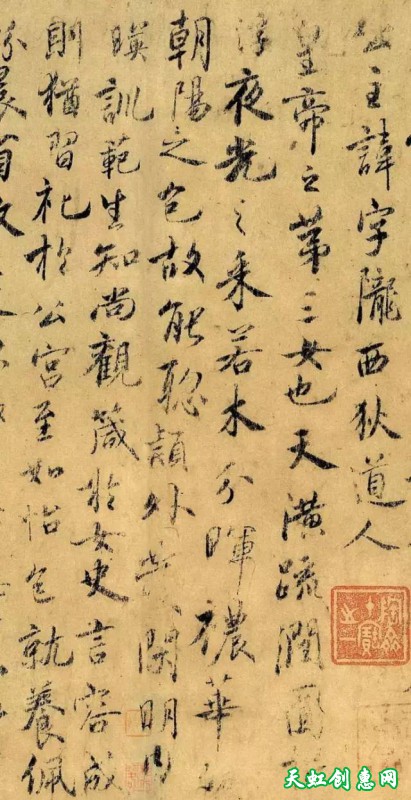 公主諱字隴西狄道人
皇帝之第三女也天潢疏潤圓
夜光之采若木分暉穠華
朝陽之色故能聡穎外發閑明内
暎訓範生知尚觀箴於女史言容成
則猶習礼於公宮至如怡色就養佩
晨省
天虹创惠网